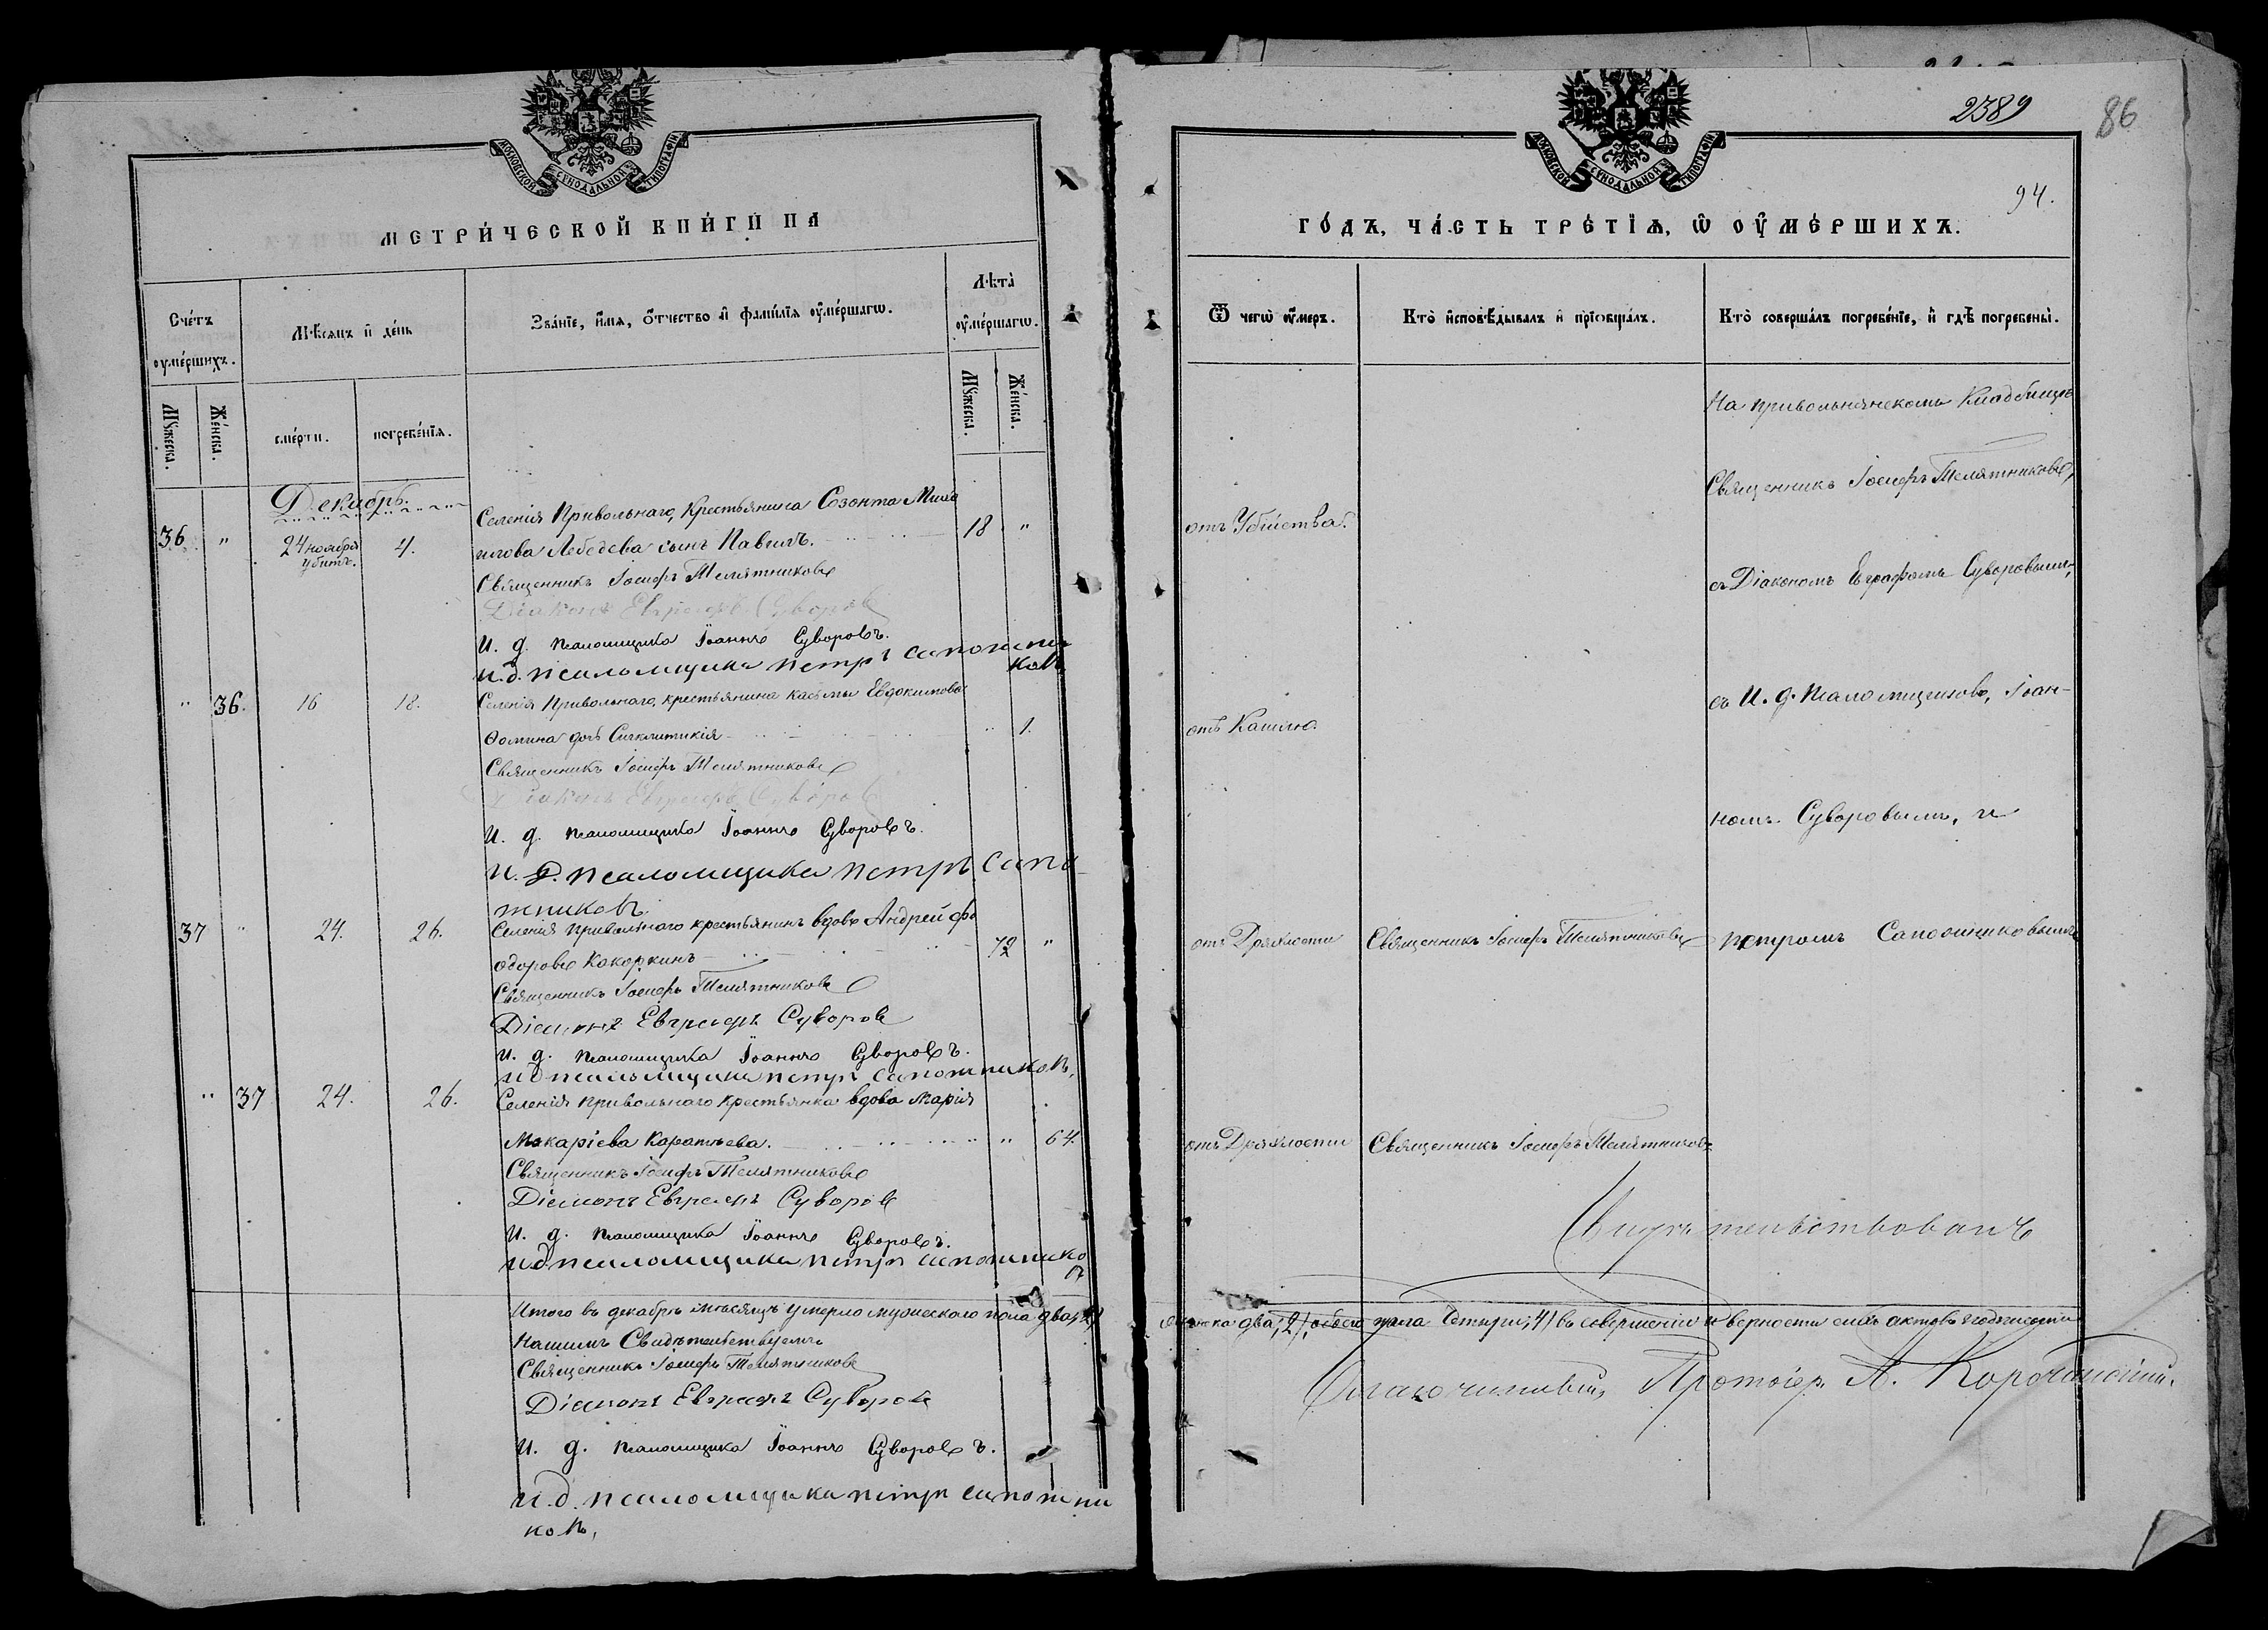 МОСКОВСКОЙ СѴНОДАЛЬНОЙ ТИПОГРАФІИ
МЕТРИ́ЧЕСКОЙ КНИ́ГИ НА
Сче́тъ оумершихъ.
Мѣсяцъ и де́нь
Зва́нїе, и́мя, о́тчество и҆ фами́лїя оуме́ршагѡ.
Лѣта̀ оуме́ршагѡ.
Мꙋжеска.
Же́нска.
сме́рти.
погребе́нїя.
Мꙋжеска.
Же́нска.
Декабрь.
36 " 24 ноября убитъ. 4.
Селенія Привольнаго, Крестьянина Созонта Миха
илова Лебедева сынъ Павелъ. 18 "
Священникъ Іосифъ Телятниковъ
Діаконъ Евграфъ Суворовъ
И. д. псаломщика Іоаннъ Суворовъ.
и.д. псаломщика петръ сапожни
ковъ
" 36. 16 18. Селенія Привольнаго, крестьянина Касьмы Евдокимова
Ѳомина дочь Синклитикія " 1.
Священникъ Іосифъ Телятниковъ
Діаконъ Евграфъ Суворовъ
И. д. псаломщика Іоаннъ Суворовъ.
И. Д. псаломщика петръ сапо
жниковъ
37 " 24. 26. Селенія Привольнаго крестьянинъ вдовъ Андрей Фе
одоровъ Кокоркинъ 72 "
Священникъ Іосифъ Телятниковъ
Діаконъ Евграфъ Суворовъ
И. д. псаломщика Іоаннъ Суворовъ.
и д псаломщика петръ сапожниковъ,
" 37 24. 26. Селенія Привольнаго крестьянка вдова Марія
Макаріева Каратѣева. " 64.
Священникъ Іосифъ Телятниковъ
Діаконъ Евграфъ Суворовъ
И. д. псаломщика Іоаннъ Суворовъ.
и д псаломщика петръ сапожнико
въ
Итого въ декабрѣ мѣсяцѣ умерло мужескаго пола два, 2)
Нашимъ Свидѣтельствуемъ
Священникъ Іосифъ Телятниковъ
Діаконъ Евграфъ Суворовъ
И. д. псаломщика Іоаннъ Суворовъ.
и.д. псаломщика петръ сапожни
ковъ,
2389
86
94.
МОСКОВСКОЙ СѴНОДАЛЬНОЙ ТИПОГРАФІИ
ГО́ДЪ, ЧА́СТЬ ТРЕ́ТЇѦ, Ѡ҆ ОУМЕ́РШИХЪ.
Ѿ чегѡ̀ оу́меръ.
Кто̀ и҆сповѣ́дывалъ и҆ прїобща́лъ.
Кто̀ соверша́лъ погребе́нїе, и҆ гдѣ̀ погребены̀.
На привольнянскомъ Кладбищѣ
Священникъ Іосифъ Телятниковъ,
отъ Убійства.
съ Діакономъ Евграфомъ Суворовымъ,
съ И. д. Псаломщиковъ, Іоан-
отъ Кашлю.
номъ Суворовымъ, и
отъ Дряхлости Священникъ Іосифъ Телятниковъ петромъ Сапожниковымъ
отъ Дряхлости Священникъ Іосифъ Телятниковъ
Свидѣтельствовалъ
женска два, 2), обоего пола Четыри, 4) въ совершеніи и верности сихъ актовъ подписомъ
Благочинный, Протоіер. А.